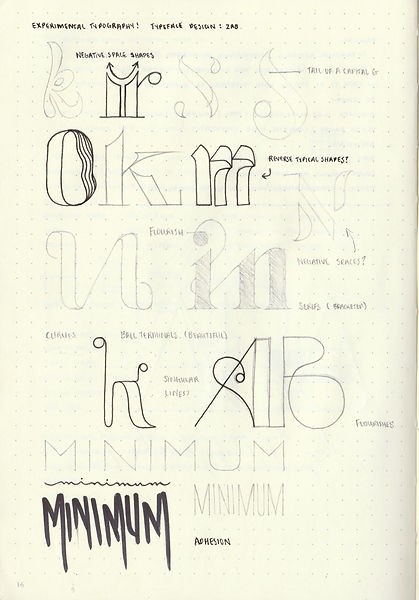 EXPERIMENTAL TYPOGRAPHY! TYPEFACE DESIGN: 2AB.
NEGATIVE SPACE SHAPES
k r s S
TAIL OF A CAPITAL G
O k m
REVERSE TYPICAL SHAPES?
N
FLOURISH
n in
NEGATIVE SPACES?
SERIFS (BRACKETED)
CURVES
BALL TERMINALS (BEAUTIFUL)
h AB
SINGULAR
LINES?
FLOURISHES
MINIMUM
minimum
MINIMUM
MINIMUM
ADHESION
16